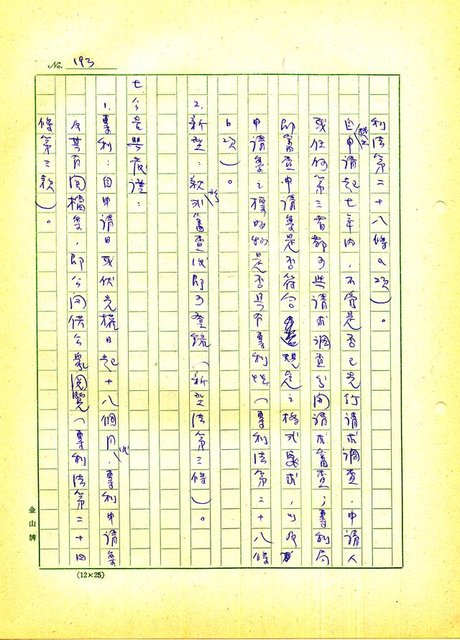 No. 193
利法第二十八條a次)。
自申請起七年內,不管是否已先行請求調查,申請人
或任何第三者都可與請求調查分開請求審查;專利局
即審查申請案是否符合規定之格式要求,以及
申請案之標的物是否具有專利性(專利法第二十八條
b次)。
2.新型:祇形式審查後即可登錄(新型法第三條)。
七、公告與閱覽:
1.專利:自申請日或優先權日起十八個月後,專利申請案
及其有關檔案,即公開供公眾閱覽(專利法第二十四
條第三款)。
金山牌
(12×25)